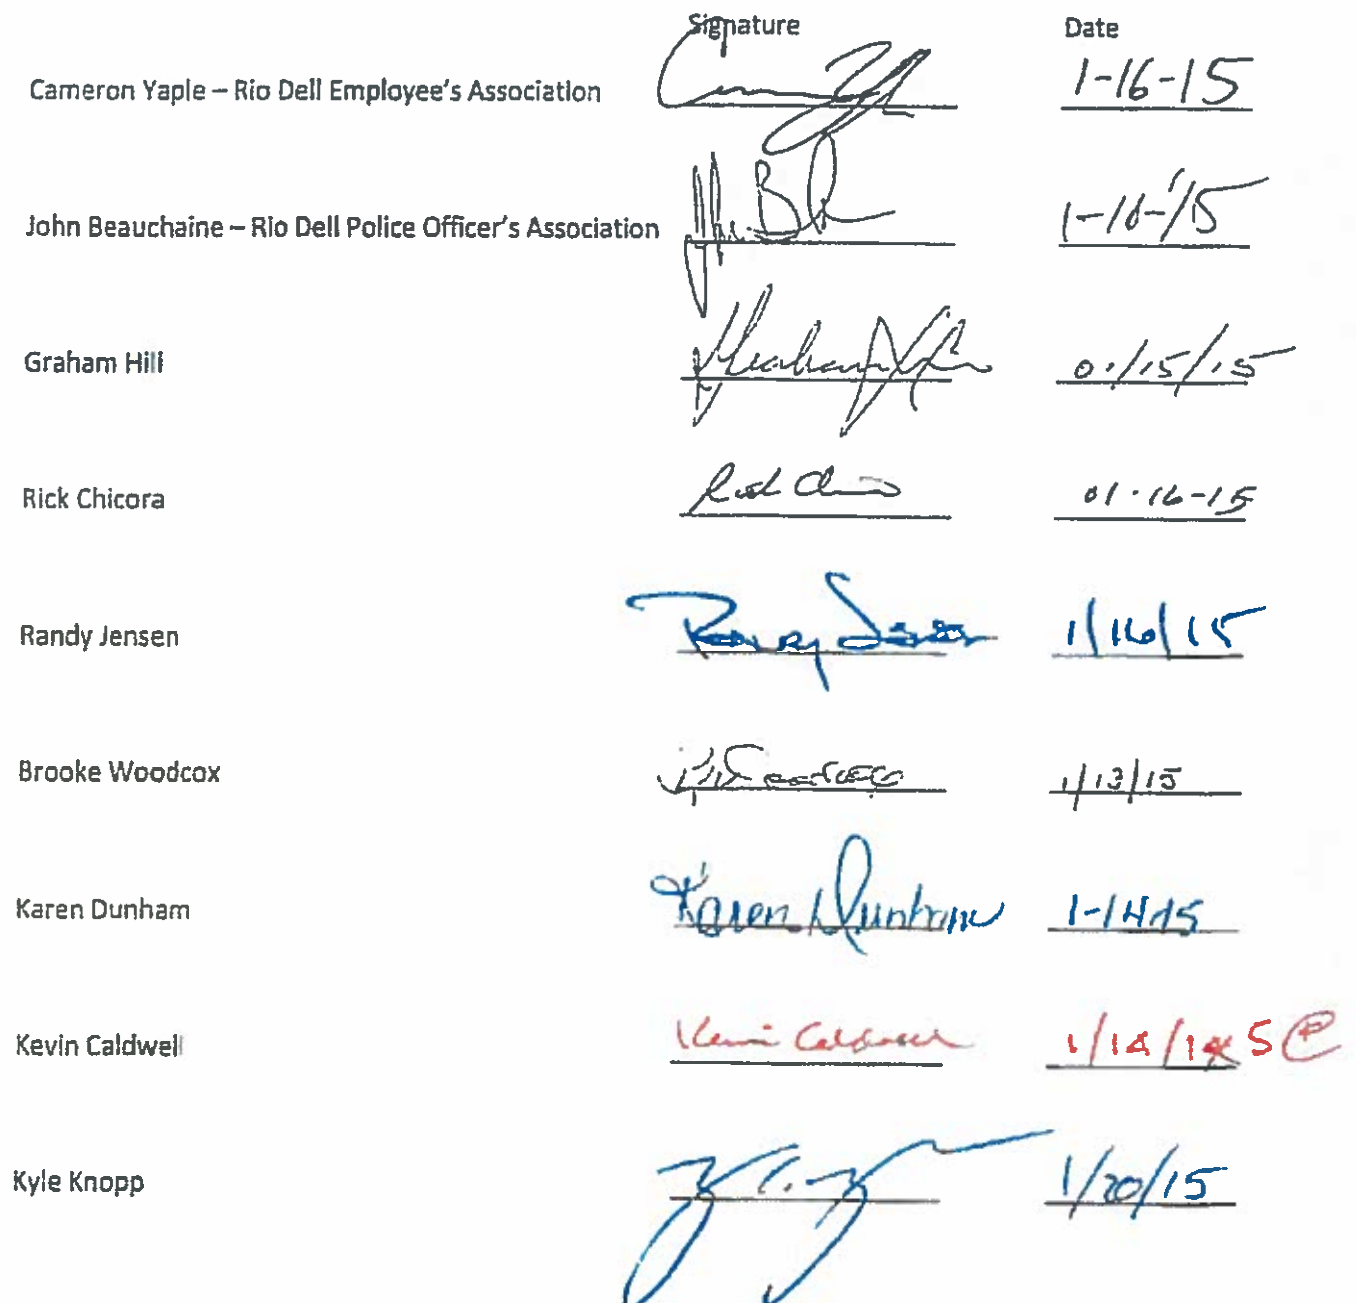 Signature Date
Cameron Yaple – Rio Dell Employee's Association 1-16-15
John Beauchaine – Rio Dell Police Officer's Association 1-16-15
Graham Hill Graham Hill 01/15/15
Rick Chicora Rick 01-16-15
Randy Jensen Randy Jensen 1/16/15
Brooke Woodcox B Woodcox 1/13/15
Karen Dunham Karen Dunham 1-14-15
Kevin Caldwell Kevin Caldwell 1/14/14 5
Kyle Knopp 1/20/15